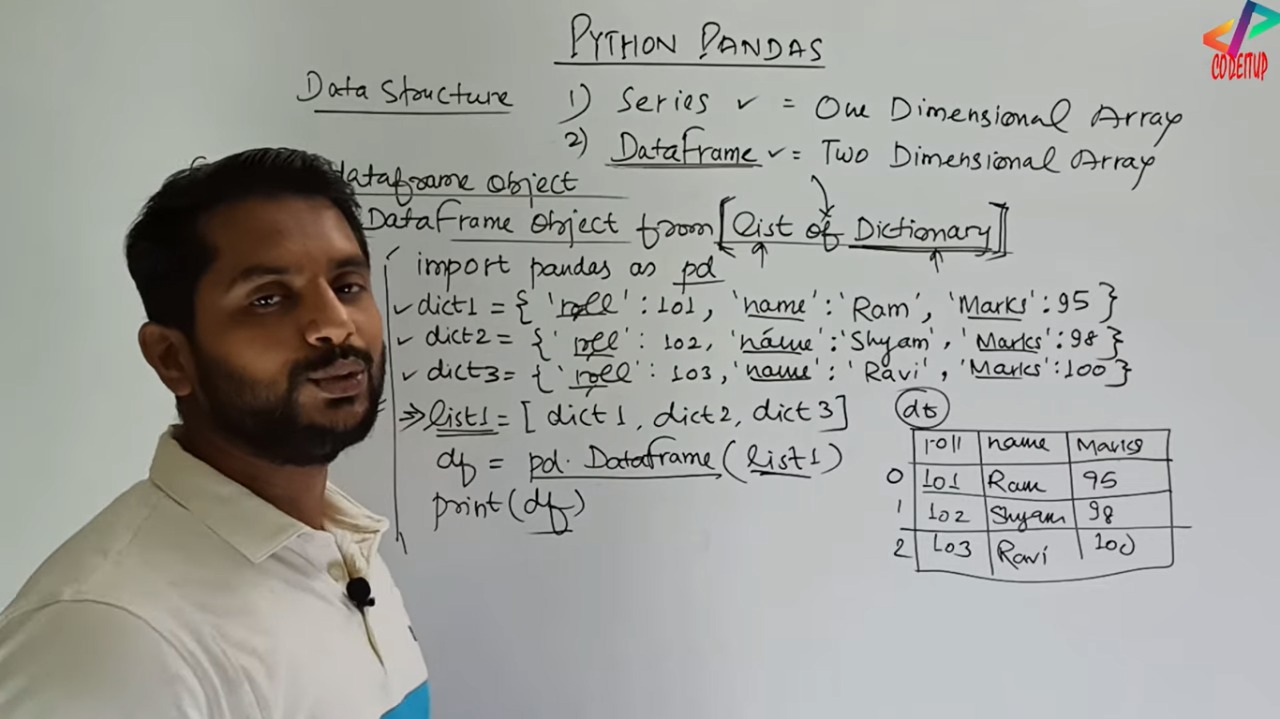 PYTHON PANDAS
CODEITUP
Data Structure 1) Series ✓ = One Dimensional Array
2) DataFrame ✓ = Two Dimensional Array
dataframe object
DataFrame object from [list of Dictionary]
import pandas as pd
✓ dict1 = { 'roll' : 101, 'name' : 'Ram', 'Marks' : 95 }
✓ dict2 = { 'roll' : 102, 'name' : 'Shyam', 'Marks' : 98 }
✓ dict3 = { 'roll' : 103, 'name' : 'Ravi', 'Marks' : 100 }
⇒ list1 = [ dict1, dict2, dict3 ]
df = pd. Dataframe (list1)
print(df)
df
roll name Marks
0 101 Ram 95
1 102 Shyam 98
2 103 Ravi 100